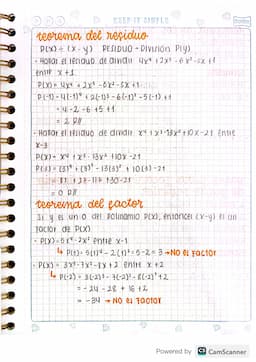 KEEP IT SIMPLE
teorema del residuo
P(x) ÷ (x - y) RESIDUO - División P(y)
- Hallar el residuo de dividir 4x⁴ + 2x³ - 6x² - 5x + 1
entre x + 1
P(x) = 4x⁴ + 2x³ - 6x² - 5x + 1
P(-1) = 4(-1)⁴ + 2(-1)³ - 6(-1)² - 5(-1) + 1
= 4 - 2 - 6 + 5 + 1
= 2 R//
- Hallar el residuo de dividir x⁴ + x³ - 13x² + 10x - 21 entre
x - 3
P(x) = x⁴ + x³ - 13x² + 10x - 21
P(3) = (3)⁴ + (3)³ - 13(3)² + 10(3) - 21
= 81 + 27 - 117 + 30 - 21
= 0 R//
teorema del factor
Si y es un 0 del polinomio P(x), entonces (x-y) es un
factor de P(x)
- P(x) = 5x⁴ - 2x³ entre x - 1
↳ P(1) = 5(1)⁴ - 2(1)³ = 5 - 2 = 3 → NO ES FACTOR
- P(x) = 3x³ - 7x² - 8x + 2 entre x + 2
↳ P(-2) = 3(-2)³ - 7(-2)² - 8(-2) + 2
= -24 - 28 + 16 + 2
= -34 → NO ES FACTOR
Powered by CS CamScanner